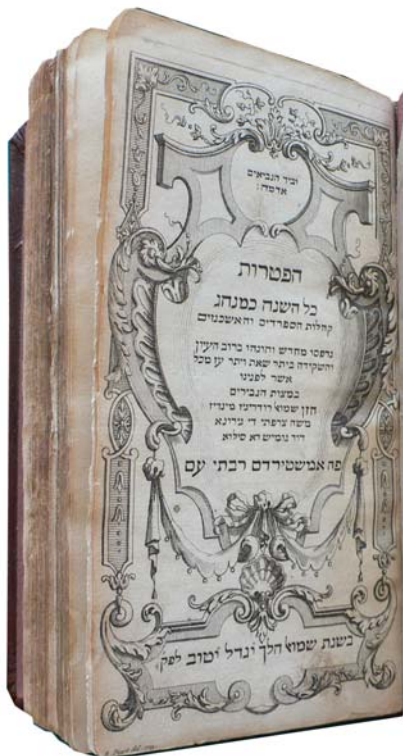 וביד הנביאים
אדמה:
הפטרות
כל השנה כמנהג
קהלות הספרדים והאשכנזים
נדפסו מחדש והוגהו ברוב העיון
והשקידה ביתר שאת ויתר עז מכל
אשר לפנינו
במצות הגבירים
חזן שמואל רודריגיז מינדיז
משה צרפתי די גירונא
דוד גומיש דא סילוא
פה אמשטירדם רבתי עם
בשנת שמואל הלך וגדל וטוב לפק